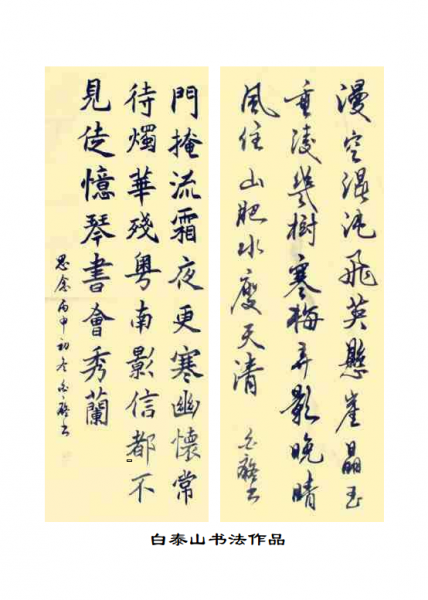 漫空混沌飛英懸崖晶玉
垂凌幾樹寒梅弄影晚晴
風住山肥水瘦天清
門掩流霜夜更寒幽懷常
待燭華殘粤南影信都不
見徒憶琴書會秀蘭
思念丙申初冬
白泰山书法作品